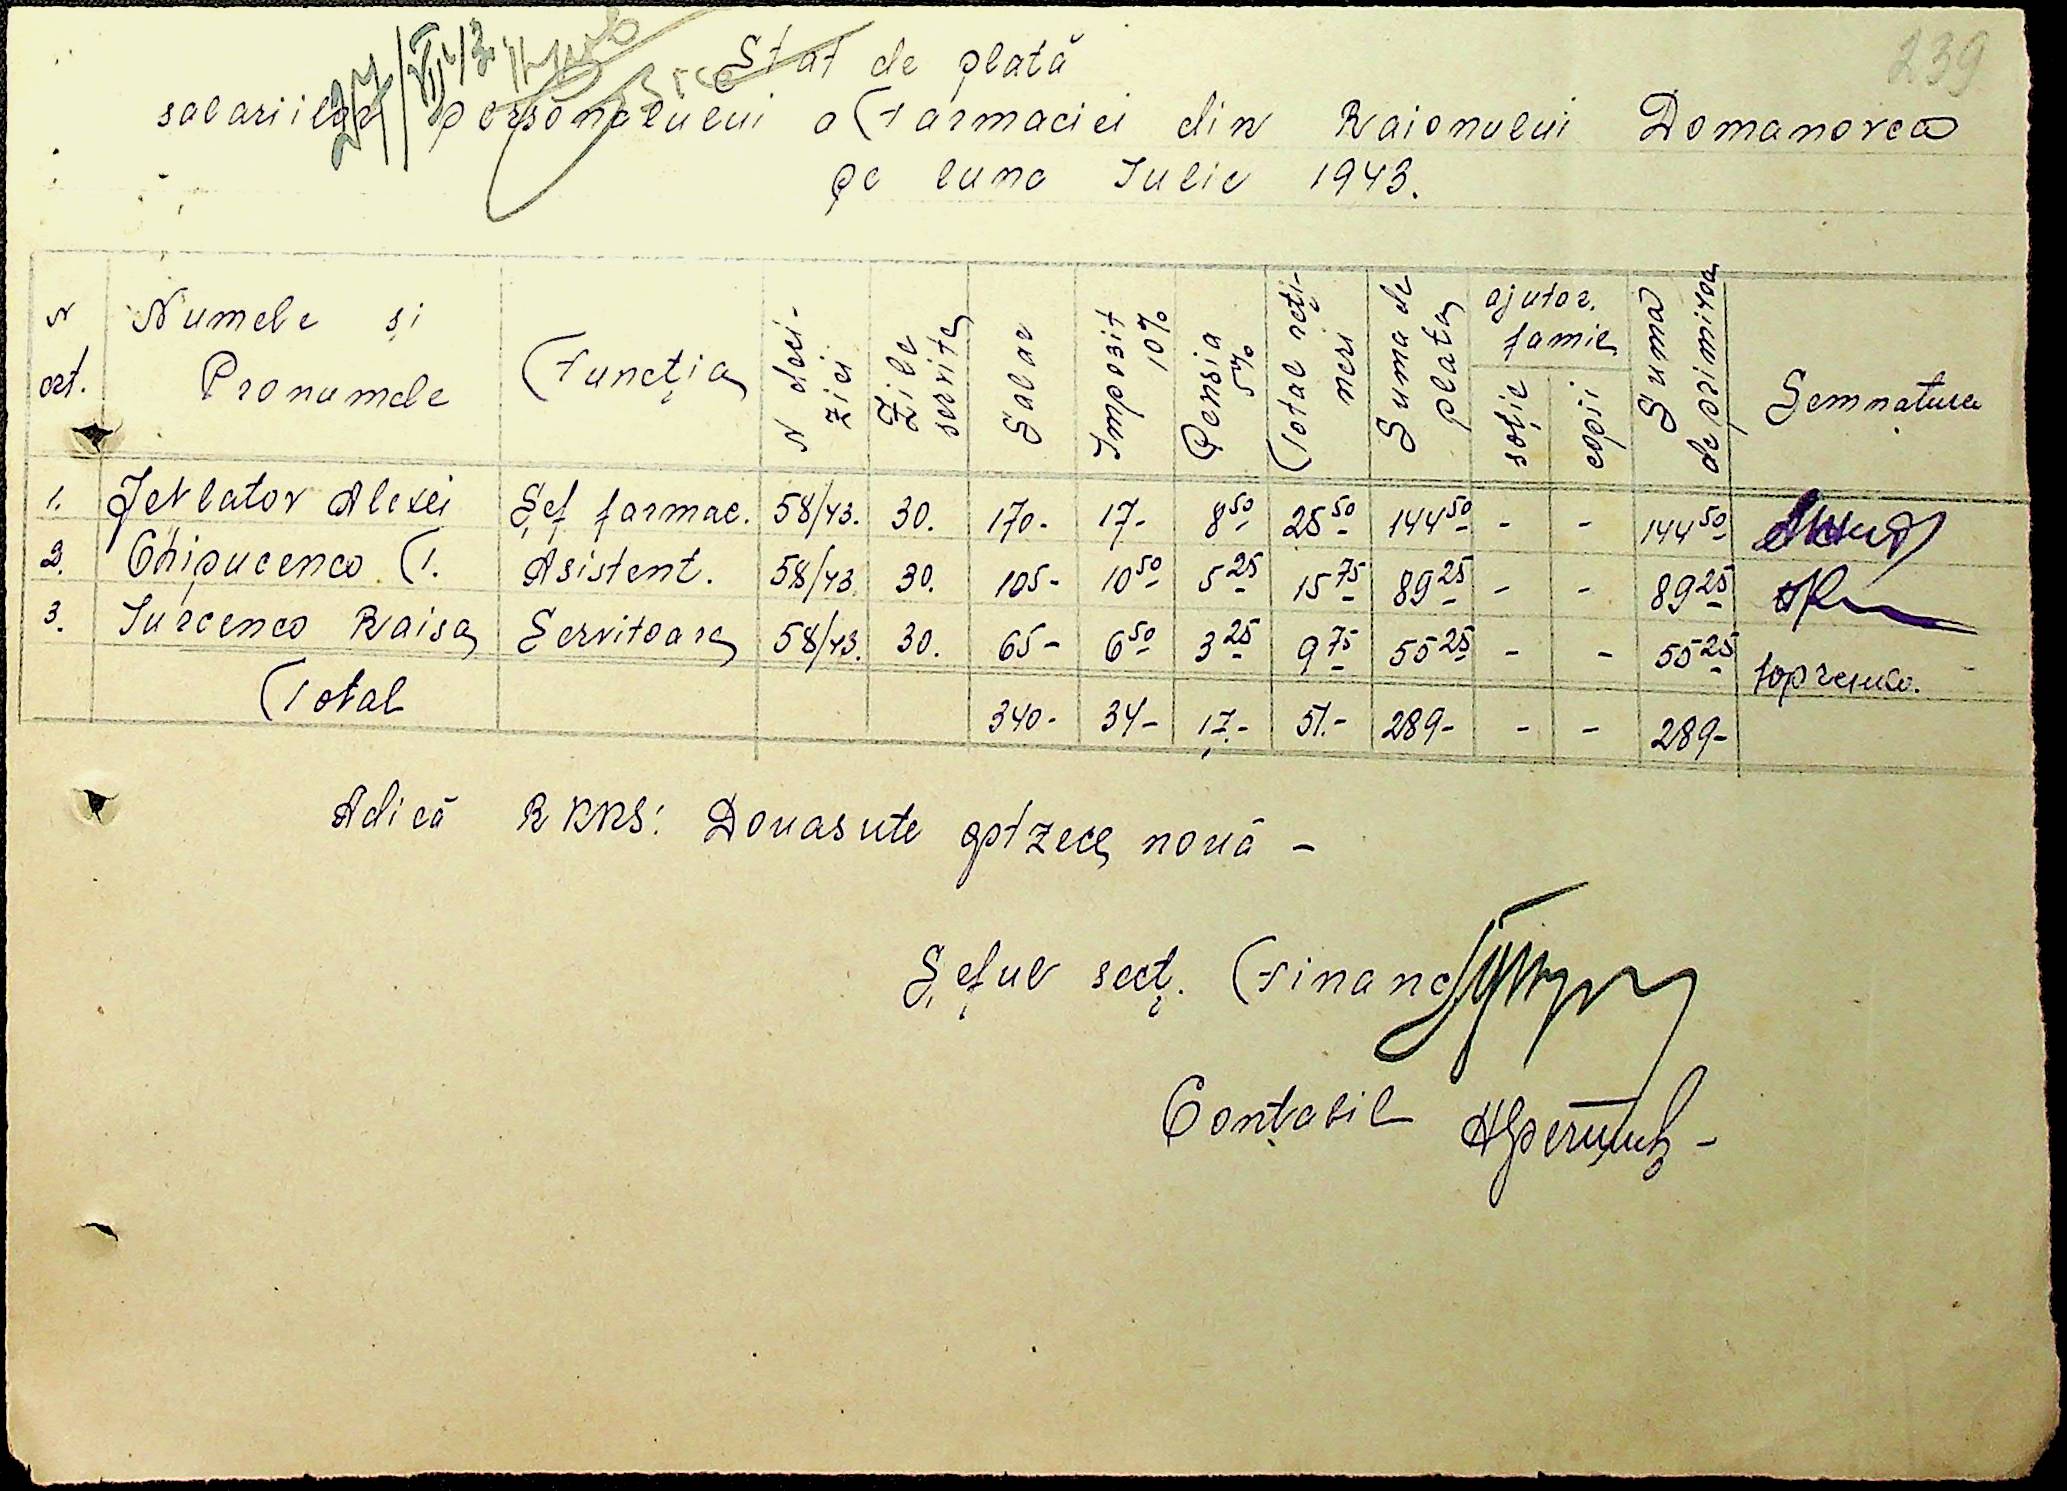 239
27/VII/43
Stat de plată
salariilor personalului a Farmaciei din Raionului Domanovca
pe luna Iulie 1943.
N ort. Numele și Pronumele Funcția N deci-zici Zile servite Salar Impozit 10% Pensia 5% Total reți-neri Suma de plata ajutor. famil. soție copii Suma de primirea Semnatura
1. Alexei Șef farmac. 58/43. 30. 170- 17- 8 50 25 50 144 50 - - 144 50
2. Chipucenco T. Asistent. 58/43. 30. 105- 10 50 5 25 15 75 89 25 - - 89 25
3. Iurcenco Raisa Servitoare 58/43. 30. 65- 6 50 3 25 9 75 55 25 - - 55 25
Total 340- 34- 17.- 51.- 289- - - 289-
Adică RKKS: Douasute optzece nouă -
Șeful secț. Financ
Contabil